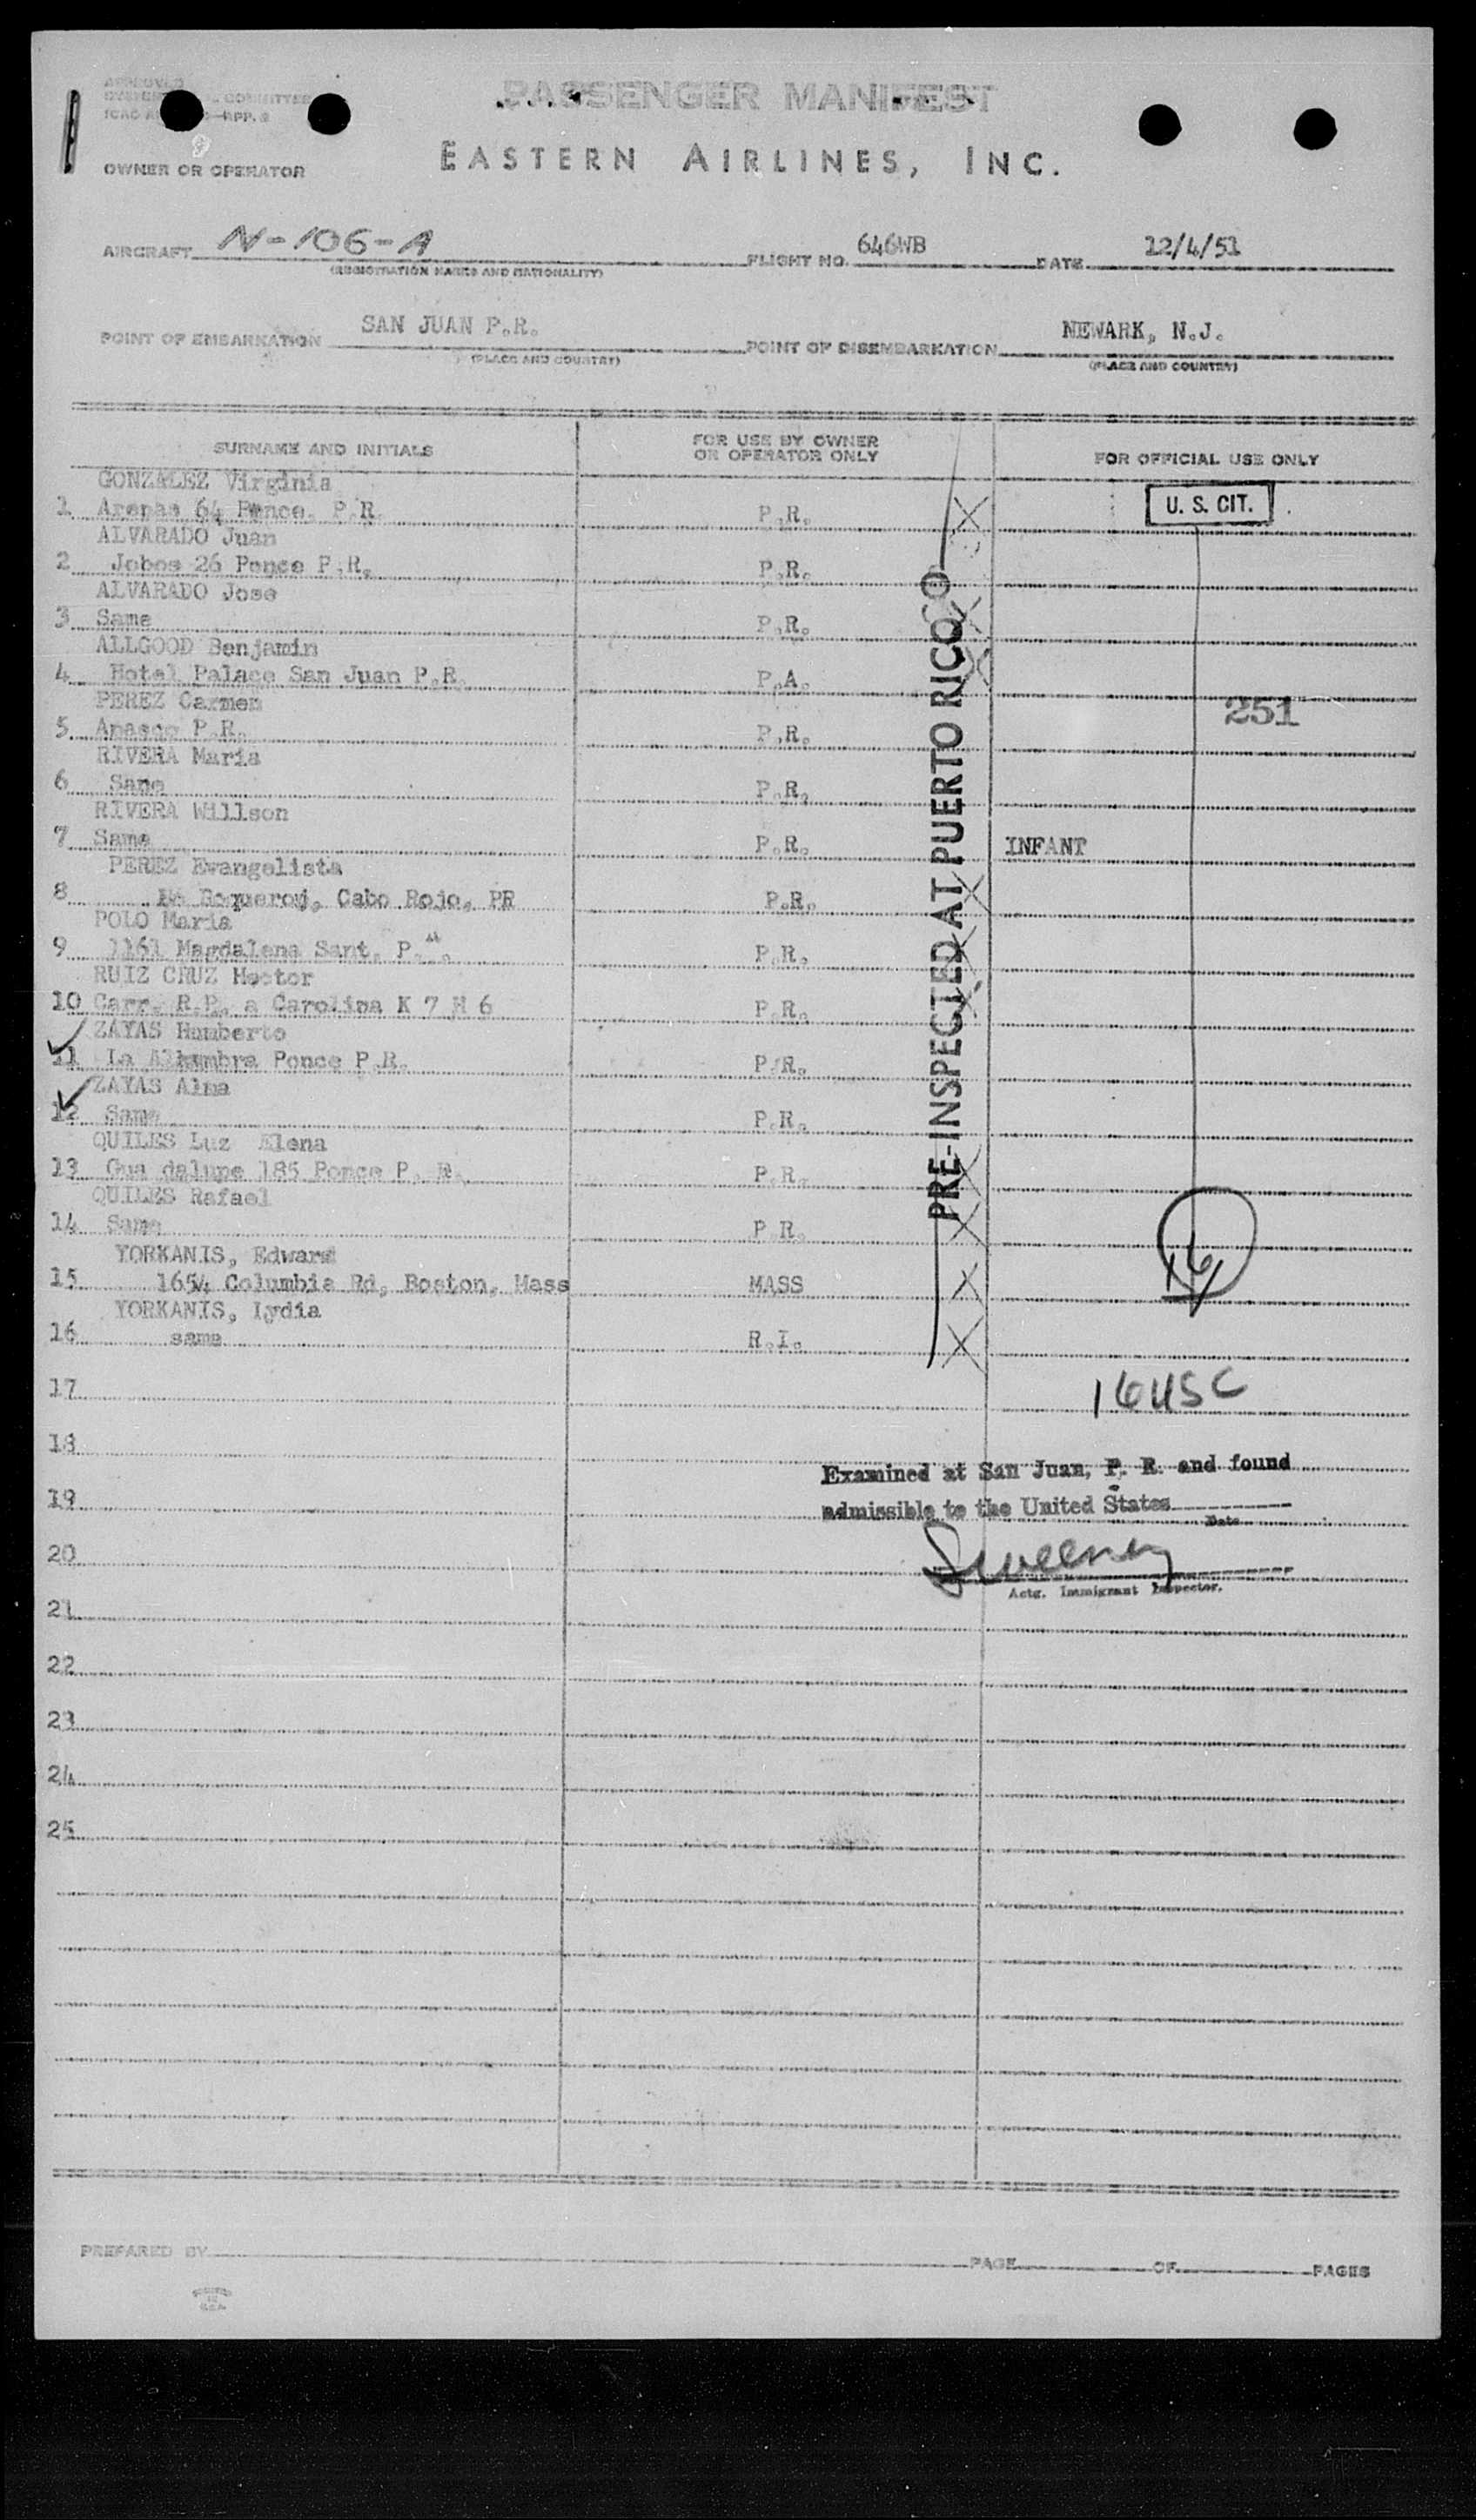 APPROVED
COMMITTEE
ICAO APP. 2
PASSENGER MANIFEST
EASTERN AIRLINES, INC.
OWNER OR OPERATOR
AIRCRAFT N-106-A FLIGHT NO. 646WB DATE 12/4/51
(REGISTRATION MARKS AND NATIONALITY)
POINT OF EMBARKATION SAN JUAN P.R. POINT OF DISEMBARKATION NEWARK, N.J.
(PLACE AND COUNTRY) (PLACE AND COUNTRY)
SURNAME AND INITIALS FOR USE BY OWNER OR OPERATOR ONLY FOR OFFICIAL USE ONLY
GONZALEZ Virginia
1 Arenas 64 Ponce, P.R. P.R. X U. S. CIT.
ALVARADO Juan
2 Jobos 26 Ponce P.R. P.R.
ALVARADO Jose
3 Same P.R. X
ALLGOOD Benjamin
4 Hotel Palace San Juan P.R. P.A. X
PEREZ Carmen 251
5 Anasco P.R. P.R.
RIVERA Maria
6 Same P.R.
RIVERA Willson
7 Same P.R. INFANT
PEREZ Evangelista
8 Cabo Rojo, PR P.R. X
POLO Maria
9 1161 Magdalena Sant. P. P.R. X
RUIZ CRUZ Hector
10 Carr. R.P. a Carolina K 7 H 6 P.R. X
ZAYAS Humberto
11 La Alhambra Ponce P.R. P.R.
ZAYAS Alma
12 Same P.R.
QUILES Luz Elena
13 Gua dalupe 185 Ponce P. R. P.R. X
QUILES Rafael
14 Same P.R. X
YORKANIS, Edward 16
15 1654 Columbia Rd, Boston, Mass MASS X
YORKANIS, Lydia
16 same R.I. X
PRE-INSPECTED AT PUERTO RICO
17 16 USC
18
Examined at San Juan, P. R. and found
19
admissible to the United States
Date
20 Sweeney
Actg. Immigrant Inspector.
21
22
23
24
25
PREPARED BY PAGE OF PAGES